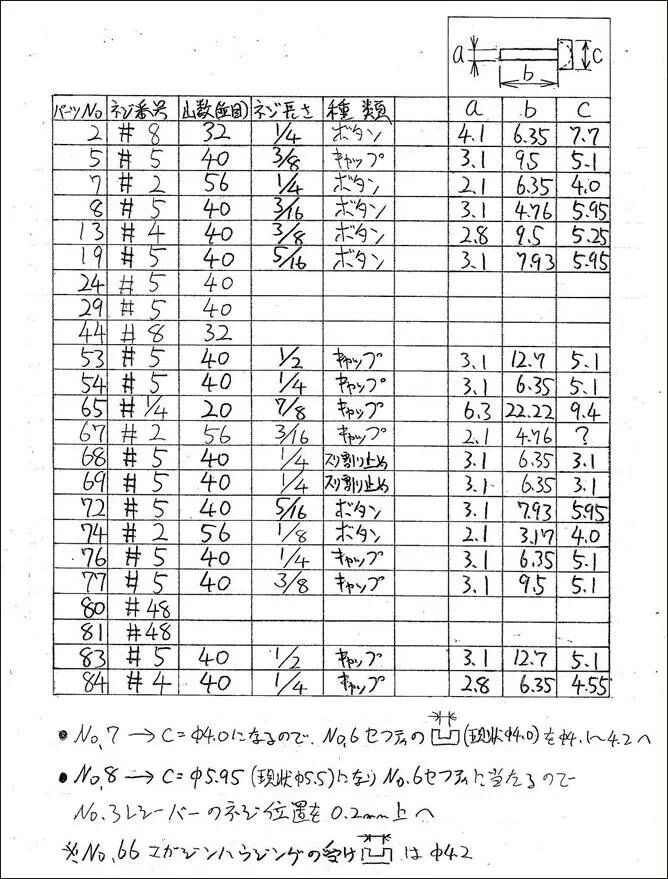 a b c
パーツNo ネジ番号 山数(笽目) ネジ長さ 種類 a b c
2 #8 32 1/4 ボタン 4.1 6.35 7.7
5 #5 40 3/8 キャップ 3.1 9.5 5.1
7 #2 56 1/4 ボタン 2.1 6.35 4.0
8 #5 40 3/16 ボタン 3.1 4.76 5.95
13 #4 40 3/8 ボタン 2.8 9.5 5.25
19 #5 40 5/16 ボタン 3.1 7.93 5.95
24 #5 40
29 #5 40
44 #8 32
53 #5 40 1/2 キャップ 3.1 12.7 5.1
54 #5 40 1/4 キャップ 3.1 6.35 5.1
65 #1/4 20 7/8 キャップ 6.3 22.22 9.4
67 #2 56 3/16 キャップ 2.1 4.76 ?
68 #5 40 1/4 スリ割り止め 3.1 6.35 3.1
69 #5 40 1/4 スリ割り止め 3.1 6.35 3.1
72 #5 40 5/16 ボタン 3.1 7.93 5.95
74 #2 56 1/8 ボタン 2.1 3.17 4.0
76 #5 40 1/4 キャップ 3.1 6.35 5.1
77 #5 40 3/8 キャップ 3.1 9.5 5.1
80 #48
81 #48
83 #5 40 1/2 キャップ 3.1 12.7 5.1
84 #4 40 1/4 キャップ 2.8 6.35 4.55
● No,7 → C=φ4.0になるので、No,6セフティの (現状φ4.0)をφ4.1〜4.2へ
● No,8 → C=φ5.95(現状φ5.5)になりNo,6セフティに当たるので
No,3レシーバーのネジ位置を0.2mm上へ
※No,66マガジンハウジングの受け はφ4.2